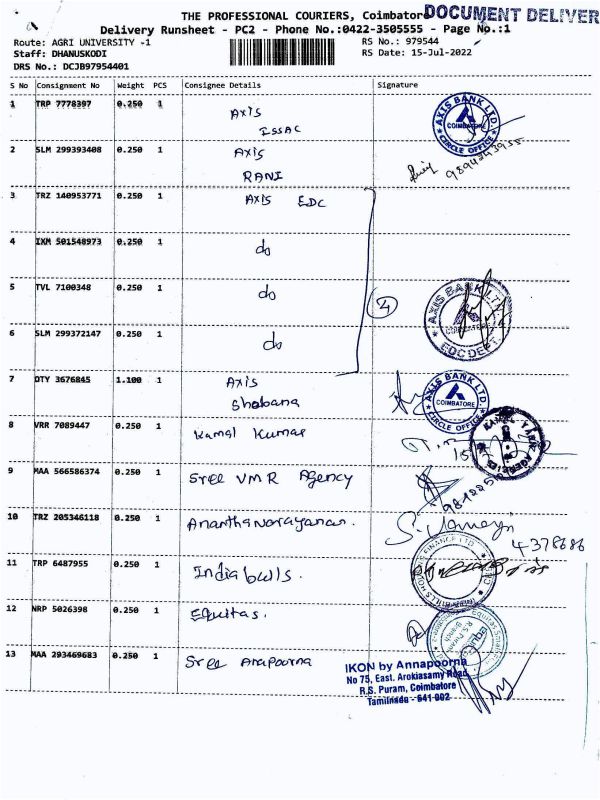 THE PROFESSIONAL COURIERS, Coimbatore
DOCUMENT DELIVER
Delivery Runsheet - PC2 - Phone No.:0422-3505555 - Page No.:1
Route: AGRI UNIVERSITY -1 RS No.: 979544
Staff: DHANUSKODI RS Date: 15-Jul-2022
DRS No.: DCJB97954401
S No Consignment No Weight PCS Consignee Details Signature
1 TRP 7778397 0.250 1 AXIS ISSAC
AXIS BANK LTD. COIMBATORE CIRCLE OFFICE
2 SLM 299393408 0.250 1 AXIS RANI
3 TRZ 140953771 0.250 1 AXIS EDC
4 IXM 501548973 0.250 1 do
5 TVL 7100348 0.250 1 do
4
AXIS BANK LTD. COIMBATORE EDC DEPT.
6 SLM 299372147 0.250 1 do
7 DTY 3676845 1.100 1 AXIS Shobana
AXIS BANK LTD. COIMBATORE CIRCLE OFFICE
8 VRR 7089447 0.250 1 Kamal Kumar
9 MAA 566586374 0.250 1 Sree VMR Agency
10 TRZ 205346118 0.250 1 Ananthanarayanan.
4378686
11 TRP 6487955 0.250 1 Indiabulls.
12 NRP 5026398 0.250 1 Equitas.
13 MAA 293469683 0.250 1 Sree Anapoorna
IKON by Annapoorna
No 75, East. Arokiasamy Road
R.S. Puram, Coimbatore
Tamilnadu - 641 002